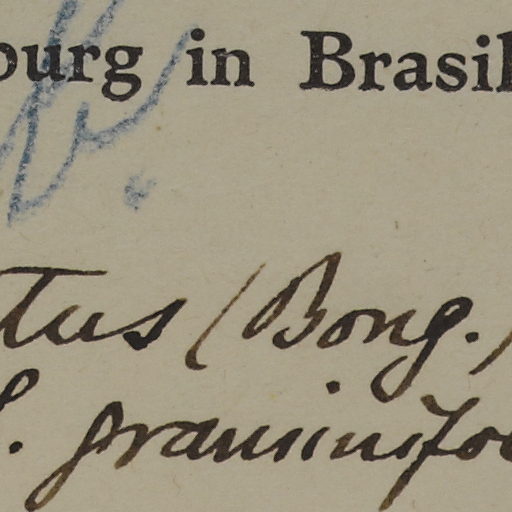 ourg in Brasil
tus (Bong.)
. graminifo